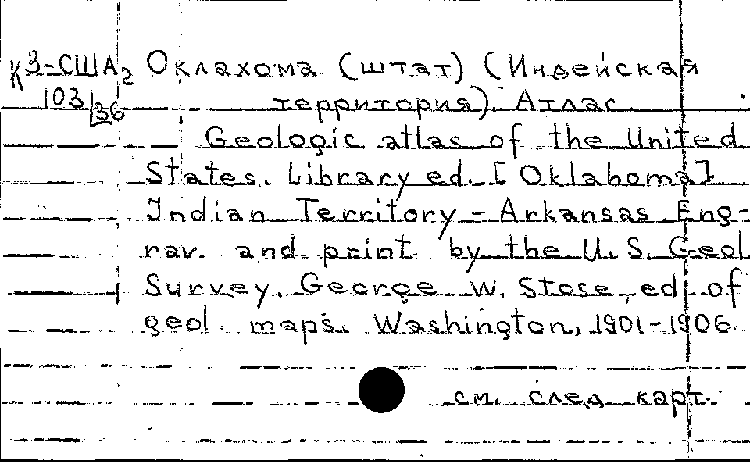 К3-США2 Оклахома (штат) (Индейская
103/36 территория). Атлас
Geologic atlas of the United
States. Library ed. [Oklahoma]
Indian Territory - Arkansas Eng-
rav. and print by the U.S. Geol
Survey. George W. Stose, ed. of
geol. maps. Washington, 1901-1906.
см. след карт.